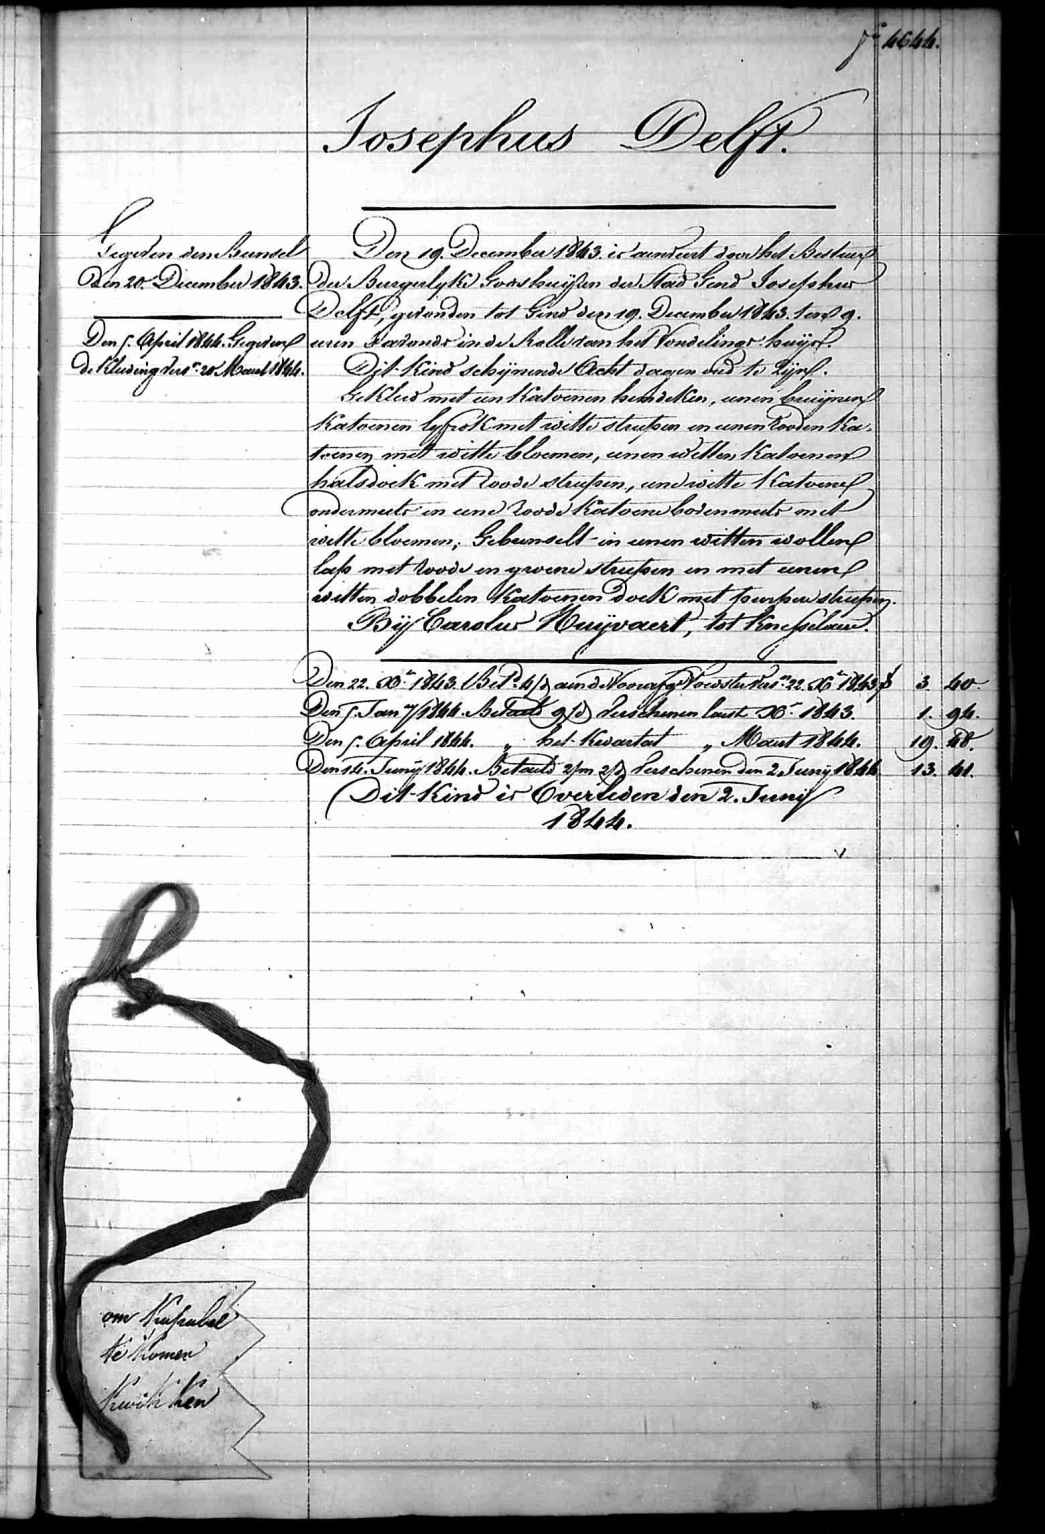 4644.
Josephus Delft.
Gegeven den Bunsel
den 20. December 1843.
Den 5. April 1844. Gegeven
de Kleeding vers. 20 Maart 1844.
Den 19. December 1843. is aenveert door het Bestuer
der Burgerlyke Godshuijsen der Stad Gend Josephus
Delft, gevonden tot Gend den 19. December 1843. ten 9.
uren s'avonds in de Rolle van het Vondelings-huijs.
Dit Kind schijnende Acht dagen oud te Zijn.
Gekleed met een Katoenen hemdeken, eenen bruijnen
Katoenen lyfrok met witte streepen en eenen rooden Ka-
toenen met witte bloemen, eenen witten Katoenen
halsdoek met roode streepen, eene witte Katoene
ondermuts en eene roode Katoene bovenmuts met
witte bloemen; Gebunselt in eenen witten wollen
lap met roode en groene streepen en met eenen
witten dobbelen Katoenen doek met purpere streepen.
Bij Carolus Huijvaert, tot Knesselaere.
Den 22. Xr. 1843. Bet. 4/d aen de Voedster vers. 22. Xr 1843 3 40.
Den 5. Jan 1844. Betaeld 9/d verschenen laest Xr. 1843. 1. 94.
Den 5. April 1844. „ het Kwartael „ Maert 1844. 19. 48.
Den 14. Junij 1844. Betaeld 2/m 2/d verschenen den 2 Junij 1844 13. 41.
Dit Kind is Overleden den 2. Junij
1844.
om
te komen